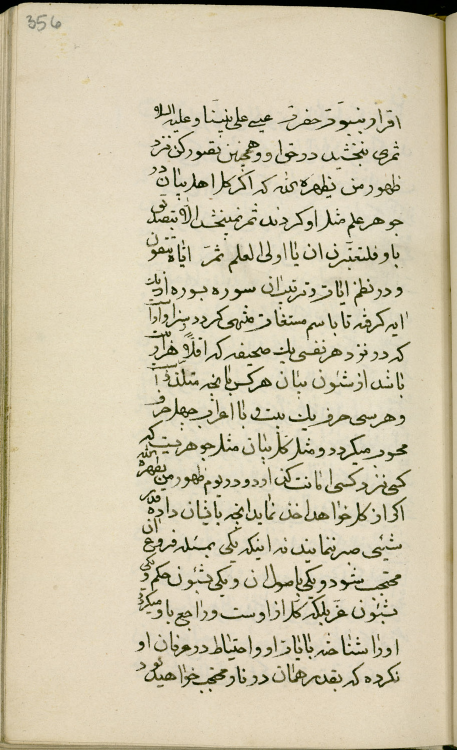 356
اقرار بنبوة حضرت عیسی علی نبینا و علیه السلام
ثمری نبخشید در حق او و همچنین تصور کن نزد
ظهور من یظهره الله که اگر کل اهل بیان در
جوهر علم مثل او گردند ثمر نمیبخشد الا بتصدیق
باو فلتعتبرن ان یا اولی العلم ثم ایاه تتقون
و در نظم ایات و ترتیب ان سوره بسوره از یک
ایه گرفته تا باسم مستغاث منتهی گردد و سزاوار است
که در نزد هر نفسی یک صحیفه که اقلا هزار بیت
باشد از شئون بیان هر کس بانچه متلذذ است
و هر سی حرف یک بیت و با اعراب چهل حرف
محسوب میگردد و مثل کل بیان مثل جوهریست که
کسی نزد کسی امانت گذارد و در یوم ظهور من یظهره الله
اگر از کل خواهد اخذ نماید انچه بایشان داده قدر
شیئی صبر ننمایند نه اینکه یکی بمسئله فروع ان
محتجب شود و یکی باصول ان و یکی بشئون حکم و یکی
بشئون عز بلکه کل از اوست و راجع باو میگردد
او را شناخته بایات او و احتیاط در عرفان او
نکرده که بقدر همان در نار محتجب خواهید بود